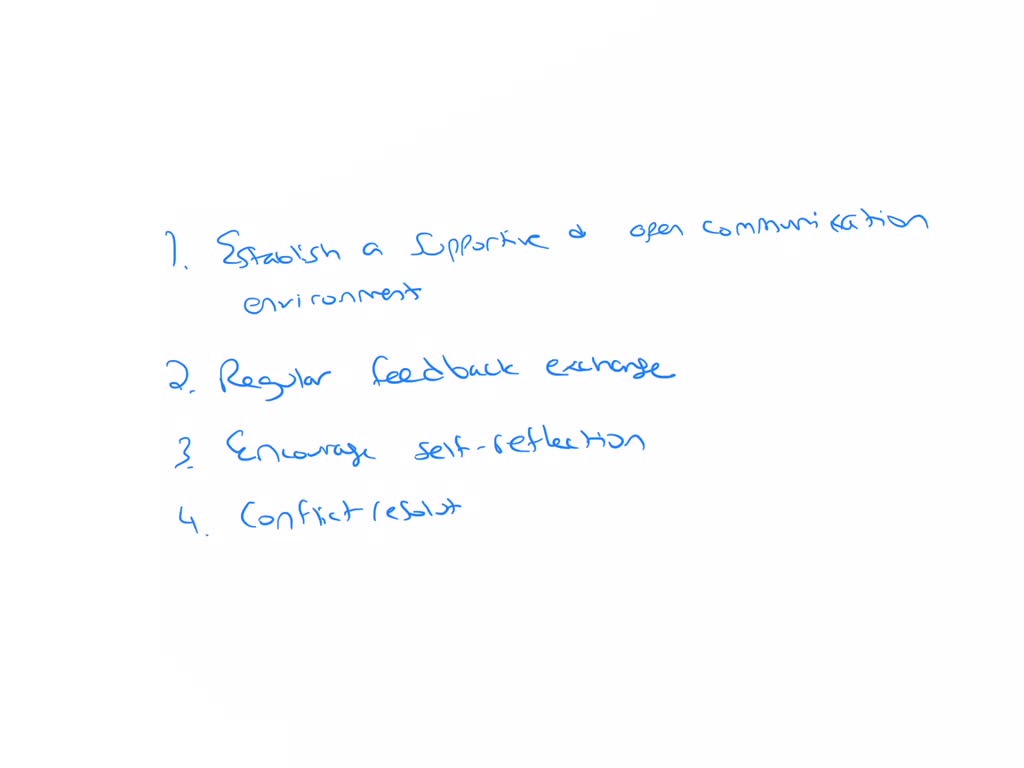 1. Establish a supportive & open communication
environment
2. Regular feedback exchange
3. Encourage self-reflection
4. Conflict resolut